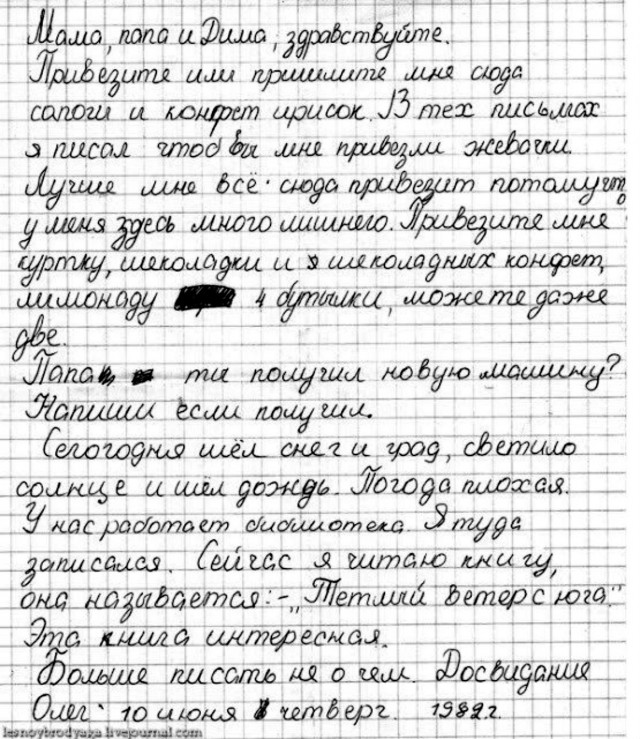 Мама, папа и Дима, здравствуйте.
Привезите или пришлите мне сюда
сапоги и конфет ирисок. В тех письмах
я писал чтоб вы мне привезли жевачки.
Лучше мне всё сюда привезит потомучто
у меня здесь много лишнего. Привезите мне
куртку, шеколадки и шеколадных конфет,
лимонаду 4 бутылки, можете даже
две.
Папа ты получил новую машину?
Напиши если получил.
Селогодня шёл снег и град, светило
солнце и шёл дождь. Погода плохая.
У нас работает библиотека. Я туда
записался. Сейчас я читаю книгу,
она называется:- „Тетлый ветер с юга."
Эта книга интересная.
Больше писать не о чем. Досвидание
Олег. 10 июня четверг. 1982 г.
lesnoybrodyaga.livejournal.com